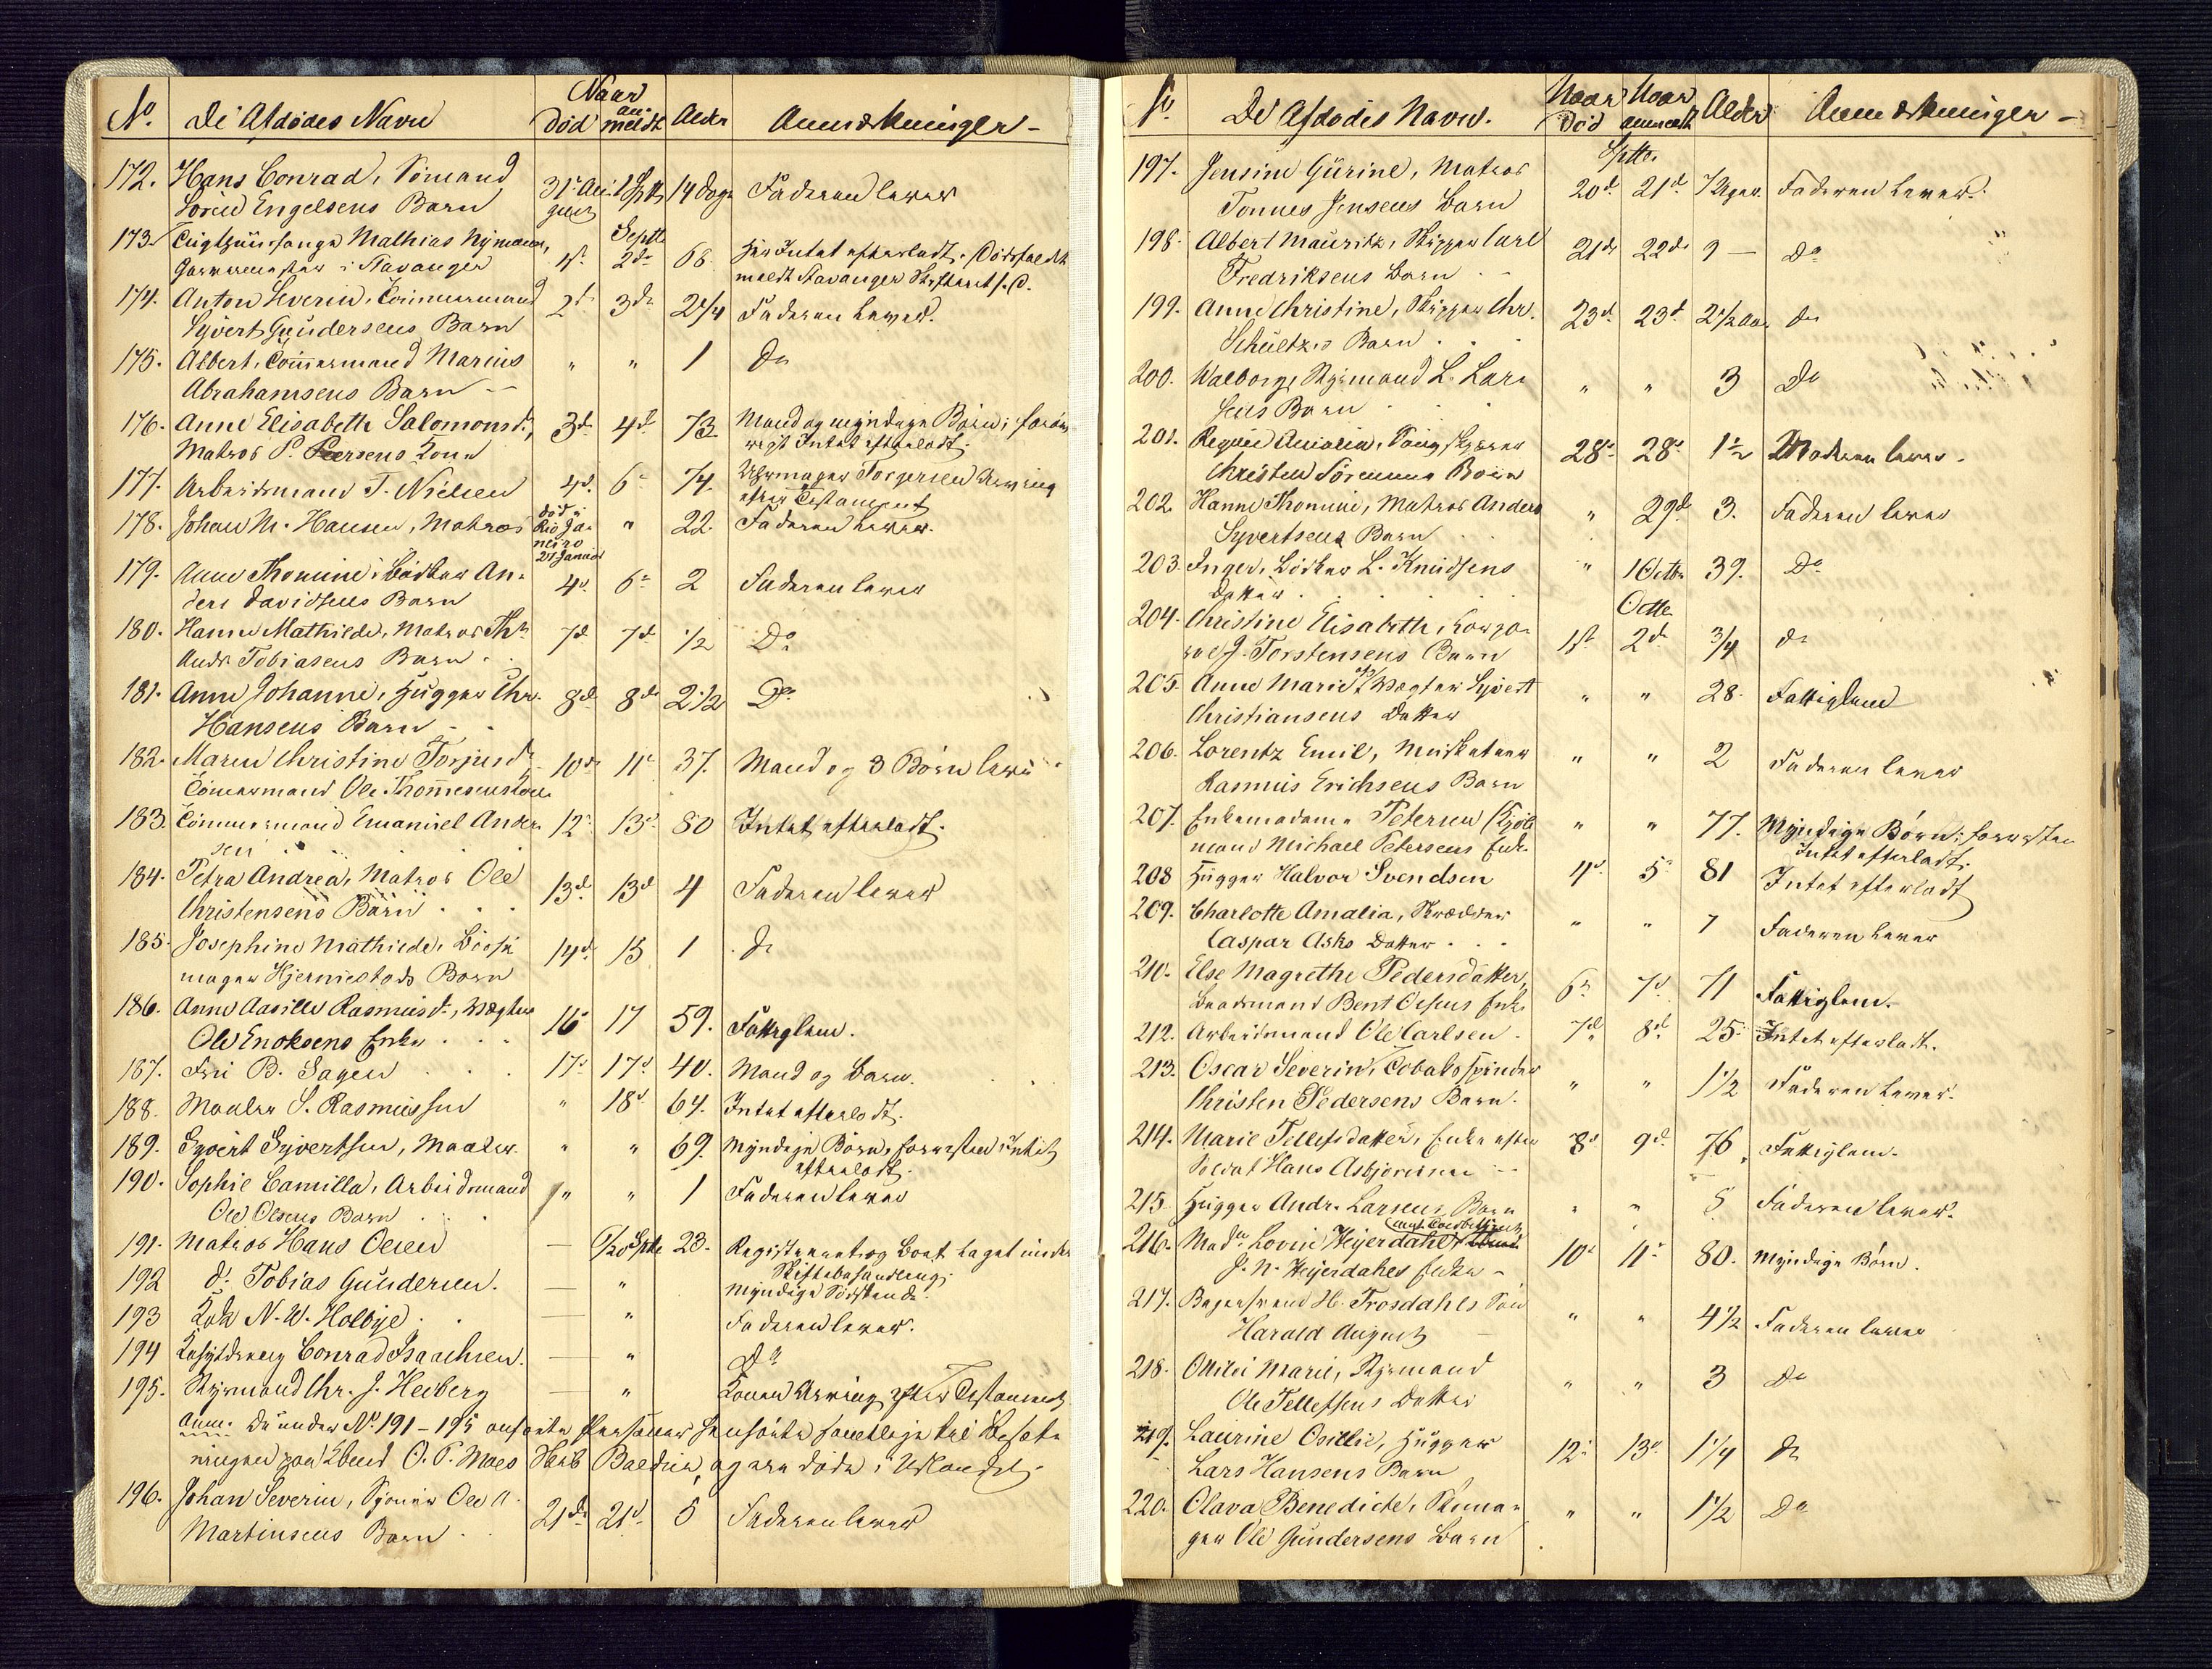 No. De Afdødes Navn Naar død an meldt Alder Anmærkninger
172. Hans Conrad, Sømand
Søren Engelsens Barn 31te Au gust 1 Septb 14 dage Faderen lever
Septb
173. Tugthuusfange Mathias Nyman,
Garvermester i Stavanger 1ste 2de 68 her Intet efterladt. Dødsfaldet
meldt Stavanger Skifteret s. D.
174. Anton Severin, Tømmermand
Syvert Gundersens Barn 2d 3de 2 1/4 Faderen lever.
175. Albert, Tømmermand Marius
Abrahamsens Barn " " 1 Do
176. Anne Elisabeth Salomonsdr,
Matros P. Peersens Kone 3d 4d 73 Mand og myndige Børn; forøv
rigt Intet efterladt.
177. Arbeidsmand T. Nielsen 4d 6 74 Uhrmager Torgersen Arving
efter Testament
178. Johan M. Hansen, Matros død i Rio Ja neiro 21 Januar " 22 Faderen lever.
179. Anne Thomine, Bødker An
ders Davidsens Barn 4d 6 2 Faderen lever
180. Hanne Mathilde, Matros Th
Andr Tobiasens Barn 7d 7d 1/2 Do
181. Anne Johanne, Hugger Chr.
Hansens Barn 8d 8de 2 1/2 Do
182. Maren Christine Torjusdr
Tømmermand Ole Thommesens Kone 10de 11 37. Mand og 3 Børn lever
183. Tømmermand Emanuel Ander
sen 12 13d 80 Intet efterladt.
184. Petra Andrea, Matros Ole
Christensens Barn 13d 13d 4 Faderen lever
185. Josephine Mathilde, Bøsse
mager Hjermestads Barn 14d 15 1 do
186. Anne Aasille Rasmusdr, Vægter
Ole Enoksens Enke 16 17 59. Fattiglem.
187. Fru B. Sagen 17d 17d 40. Mand og Barn.
188. Maaler S. Rasmussen " 18d 64. Intet efterladt.
189. Syvert Syvertsen, Maaler " " 69. Myndige Børn, forresten Intet
efterladt.
190. Sophie Camilla, Arbeidsmand
Ole Olsens Barn " " 1 Faderen lever
191. Matros Hans Olsen — 20 Septb 23. Registreret og Boet taget under
Skiftebehandling.
192 do Tobias Gundersen. — " Myndige Sødskende.
193 Kok N. W. Holbye — " Faderen lever.
194 Kahytsdreng Conrad Isachsen. — " Do
195. Styrmand Chr. J. Heiberg — " Konen Arving efter Testament
Anm. De under No 191-195 anførte Personer henhørte samtlige til Besæt
ningen paa O. P. Moes Skib Baldur, og ere døde i Udlandet.
196. Johan Severin, Ole A.
Martinsens Barn 21de 21d 5 Faderen lever
No De Afdødes Navn. Naar død Naar anmeldt Alder Anmærkninger
Septb.
197. Jensine Gurine, Matros
Tønnes Jensens Barn 20d 21d 7 Uger. Faderen lever.
198. Albert Mauritz, Skipper Carl
Fredriksens Barn 21de 22de 9 — Do
199. Anne Christine, Skipper Chr.
Schultzes Barn 23d 23d 2 1/2 Aar do
200. Walborg, Styrmand L. Lar
sens Barn " " 3 Do
201. Amalia,
Christen Sørensens Barn 28 28 1 1/2 Moderen lever.
202. Hanne Thomine, Matros Anders
Syvertsens Barn " 29d 3. Faderen lever
203. Inger, Bødker L. Knudsens
Datter " 1 Octbr 39. Do
Octb
204. Christine Elisabeth, Korpo
ral J. Torstensens Barn 1ste 2de 3/4 do
205. Anne Marie, Vægter Syvert
Christiansens Datter " " 28. Fattiglem
206. Lorentz Emil, Musketeer
Rasmus Erichsens Barn " " 2 Faderen lever
207. Enkemadame Petersen (Kjøb
mand Michael Petersens Enke " " 77. Myndige Børn; forresten
Intet efterladt.
208 Hugger Halvor Svendsen 4d 5 81 Intet efterladt
209. Charlotte Amalia, Skrædder
Caspar Asks Datter " " 7 Faderen lever
210. Else Magrethe Pedersdatter,
Baadsmand Bent Olsens Enke 6 7d 71 Fattiglem.
212. Arbeidsmand Ole Carlsen 7d 8d 25 Intet efterladt.
213. Oscar Severin, Tobaksspinder
Christen Pedersens Barn. " " 1 1/2 Faderen lever.
214. Marie Tellefsdatter, Enke efter
Soldat Hans Asbjørnsen 8d 9d 76 Fattiglem.
215. Hugger Andr. Larsens Barn " " 5 Faderen lever.
216. Made Lovise Heyerdahl
J. N. Heyerdahls Enke 10d 11 80. Myndige Børn.
217. Bagersvend H. Frosdahls Søn
Harald August " " 4 1/2 Faderen lever
218. Otilie Marie, Styrmand
Ole Tellefsens Datter " " 3 Do
219. Laurine Otillie, Hugger
Lars Hansens Barn 12 13d 1 1/4 Do
220. Olava Benedicte, Skoma
ger Ole Gundersens Barn " " 1 1/2 Do